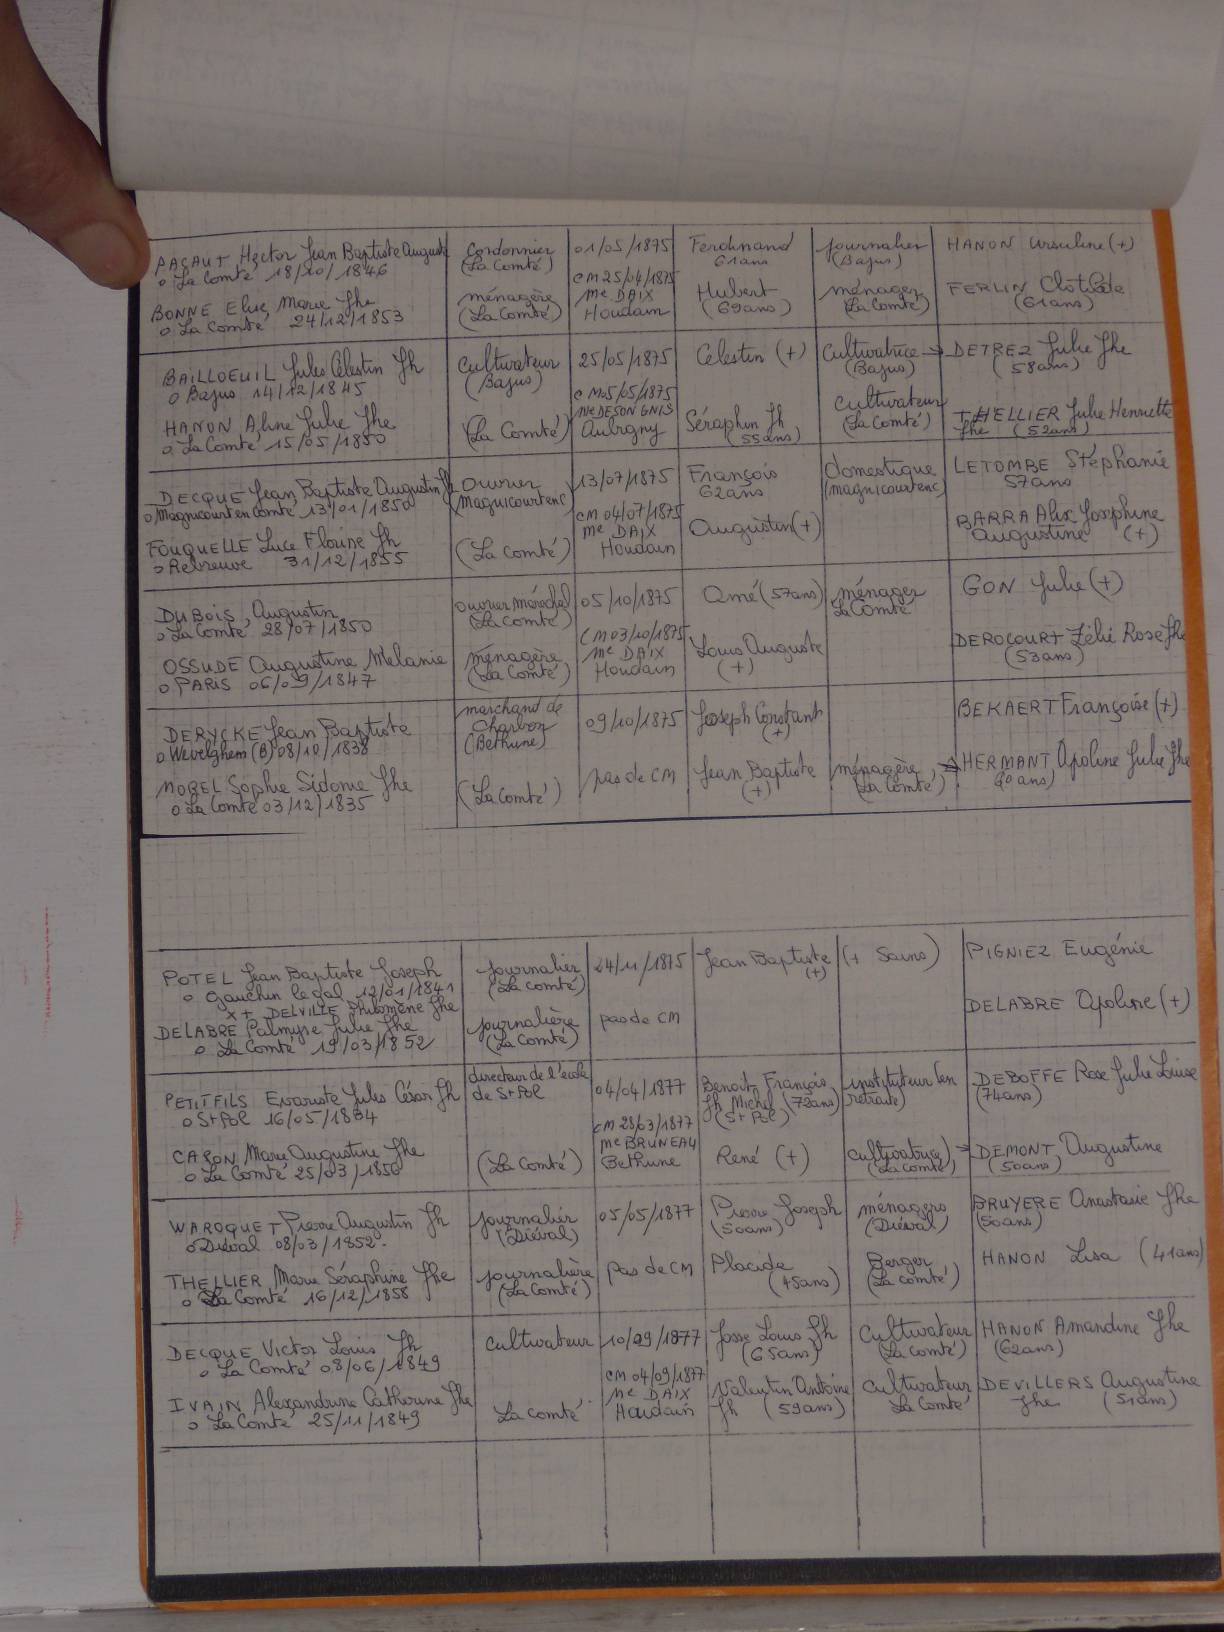 PACAUT Hector Jean Baptiste Auguste
o La Comté 18/10/1846
Cordonnier
(La Comté)
01/05/1875
Ferdinand
61ans
journalier
(Bajus)
HANON Ursuline (+)
BONNE Elise Marie Jhe
o La Comté 24/12/1853
ménagère
(La Comté)
CM 25/04/1875
Me DAIX
Houdain
Hubert
(69ans)
ménager
(La Comté)
FERLIN Clotilde
(61ans)
BAILLOEUIL Jules Célestin Jh
o Bajus 14/12/1845
Cultivateur
(Bajus)
25/05/1875
Célestin (+)
Cultivatrice →
(Bajus)
DETREZ Julie Jhe
(58ans)
HANON Aline Julie Jhe
o La Comté 15/05/1850
(La Comté)
CM 05/05/1875
Me DESONGNIS
Aubigny
Séraphin Jh
(55ans)
cultivateur
(La Comté)
THELLIER Julie Henriette
Jhe (52ans)
DECQUE Jean Baptiste Augustin Jh
o Magnicourt en comté 13/01/1850
Ouvrier
(Magnicourtenc)
13/07/1875
François
62ans
domestique
(magnicourtenc)
LETOMBE Stéphanie
57ans
FOUQUELLE Luce Florine Jh
o Rebreuve 31/12/1855
(La Comté)
CM 04/07/1875
Me DAIX
Houdain
Augustin (+)
BARRA Alix Josephine
Augustine (+)
DUBOIS Augustin
o La Comté 28/07/1850
ouvrier maréchal
(La Comté)
05/10/1875
Amé (57ans)
ménager
La Comté
GON Julie (+)
OSSUDE Augustine Mélanie
o PARIS 06/09/1847
ménagère
(La Comté)
CM 03/10/1875
Me DAIX
Houdain
Louis Auguste
(+)
DEROCOURT Zélie Rose Jhe
(53ans)
DERYCKE Jean Baptiste
o Wevelghem (B) 08/10/1838
marchand de
Charbon
(Bethune)
09/10/1875
Joseph Constant
(+)
BEKAERT Françoise (+)
MOREL Sophie Sidonie Jhe
o La Comté 03/12/1835
(La Comté)
pas de CM
Jean Baptiste
(+)
ménagère →
(La Comté)
HERMANT Apoline Julie Jhe
POTEL Jean Baptiste Joseph
o Gauchin le gal 12/01/1841
x + DELVILLE Philomène Jhe
journalier
(La Comté)
24/11/1875
Jean Baptiste
(+)
(+ Sains)
PIGNIEZ Eugénie
DELABRE Palmyre Julie Jhe
o La Comté 19/03/1852
journalière
(La Comté)
pas de CM
DELABRE Apoline (+)
PETITFILS Evariste Jules César Jh
o St Pol 16/05/1834
directeur de l'école
de St Pol
04/04/1877
Benoit François
Jh Michel (72ans)
(St Pol)
instituteur (en
retraite)
DEBOFFE Rose Julie Louise
(74ans)
CARON Marie Augustine Jhe
o La Comté 25/03/1850
(La Comté)
CM 28/03/1877
Me BRUNEAU
Bethune
René (+)
cultivatrice →
(La Comté)
DEMONT Augustine
(50ans)
WAROQUET Pierre Augustin Jh
o Diéval 08/03/1852.
journalier
(Diéval)
05/05/1877
Pierre Joseph
(50ans)
ménagers
(Diéval)
BRUYERE Anastasie Jhe
(50ans)
THELLIER Marie Séraphine Jhe
o La Comté 16/12/1858
journalière
(La Comté)
Pas de CM
Placide
(45ans)
Berger
(La Comté)
HANON Lisa (41ans)
DECQUE Victor Louis Jh
o La Comté 08/06/1849
Cultivateur
10/09/1877
Josse Louis Jh
(65ans)
Cultivateur
(La Comté)
HANON Amandine Jhe
(62ans)
IVAIN Alexandrine Catherine Jhe
o La Comté 25/11/1849
La Comté
CM 04/09/1877
Me DAIX
Houdain
Valentin Antoine
Jh (59ans)
Cultivateur
La Comté
DEVILLERS Augustine
Jhe (51ans)